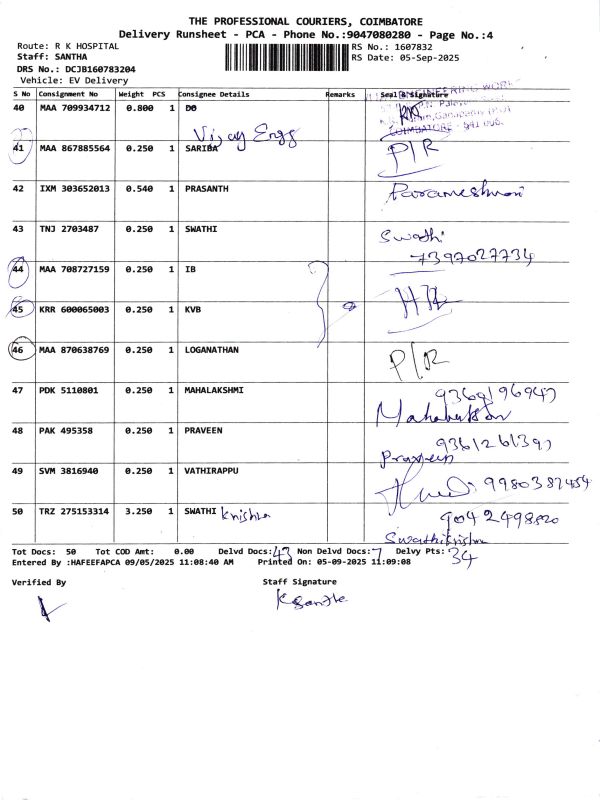 THE PROFESSIONAL COURIERS, COIMBATORE
Delivery Runsheet - PCA - Phone No.:9047080280 - Page No.:4
Route: R K HOSPITAL RS No.: 1607832
Staff: SANTHA RS Date: 05-Sep-2025
DRS No.: DCJB160783204
Vehicle: EV Delivery
S No Consignment No Weight PCS Consignee Details Remarks Seal & Signature
40 MAA 709934712 0.800 1 DO
Vijay Engg
COIMBATORE
41 MAA 867885564 0.250 1 SARIBA P/R
42 IXM 303652013 0.540 1 PRASANTH Parameshwari
43 TNJ 2703487 0.250 1 SWATHI Swathi
7397027734
44 MAA 708727159 0.250 1 IB
45 KRR 600065003 0.250 1 KVB
46 MAA 870638769 0.250 1 LOGANATHAN P/R
47 PDK 5110801 0.250 1 MAHALAKSHMI
48 PAK 495358 0.250 1 PRAVEEN
Praveen
49 SVM 3816940 0.250 1 VATHIRAPPU
50 TRZ 275153314 3.250 1 SWATHI Krishna
Swathikrishna
Tot Docs: 50 Tot COD Amt: 0.00 Delvd Docs: 43 Non Delvd Docs: 7 Delvy Pts: 34
Entered By :HAFEEFAPCA 09/05/2025 11:08:40 AM Printed On: 05-09-2025 11:09:08
Verified By Staff Signature
K Santha